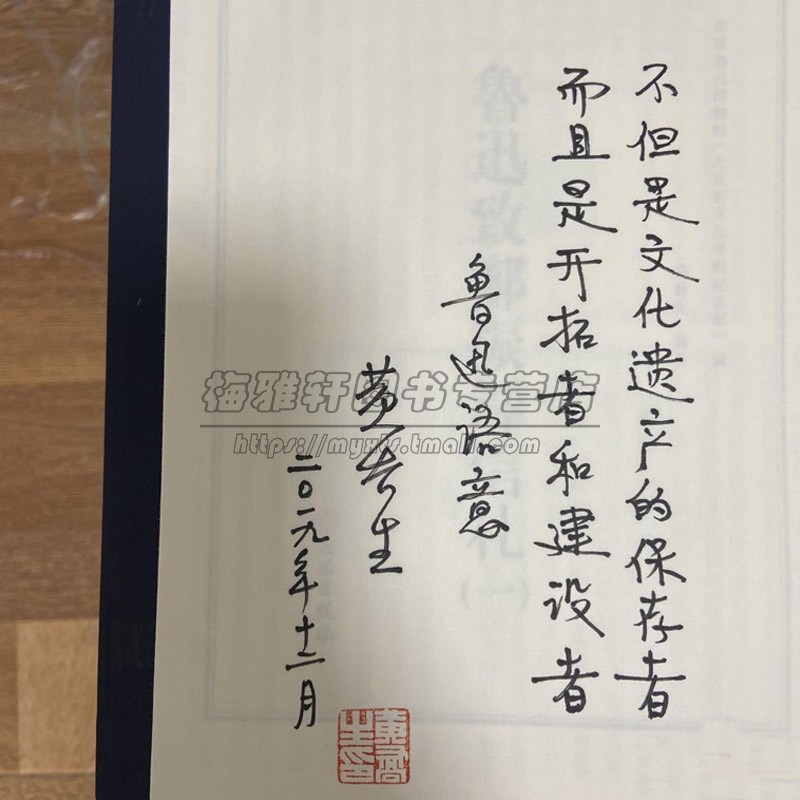 不但是文化遗产的保存者
而且是开拓者和建设者
鲁迅语意
黄乔生
二〇一九年十二月
黄乔生印
梅雅轩图书专营店
https://myxts.tmall.com
鲁迅致
(一)